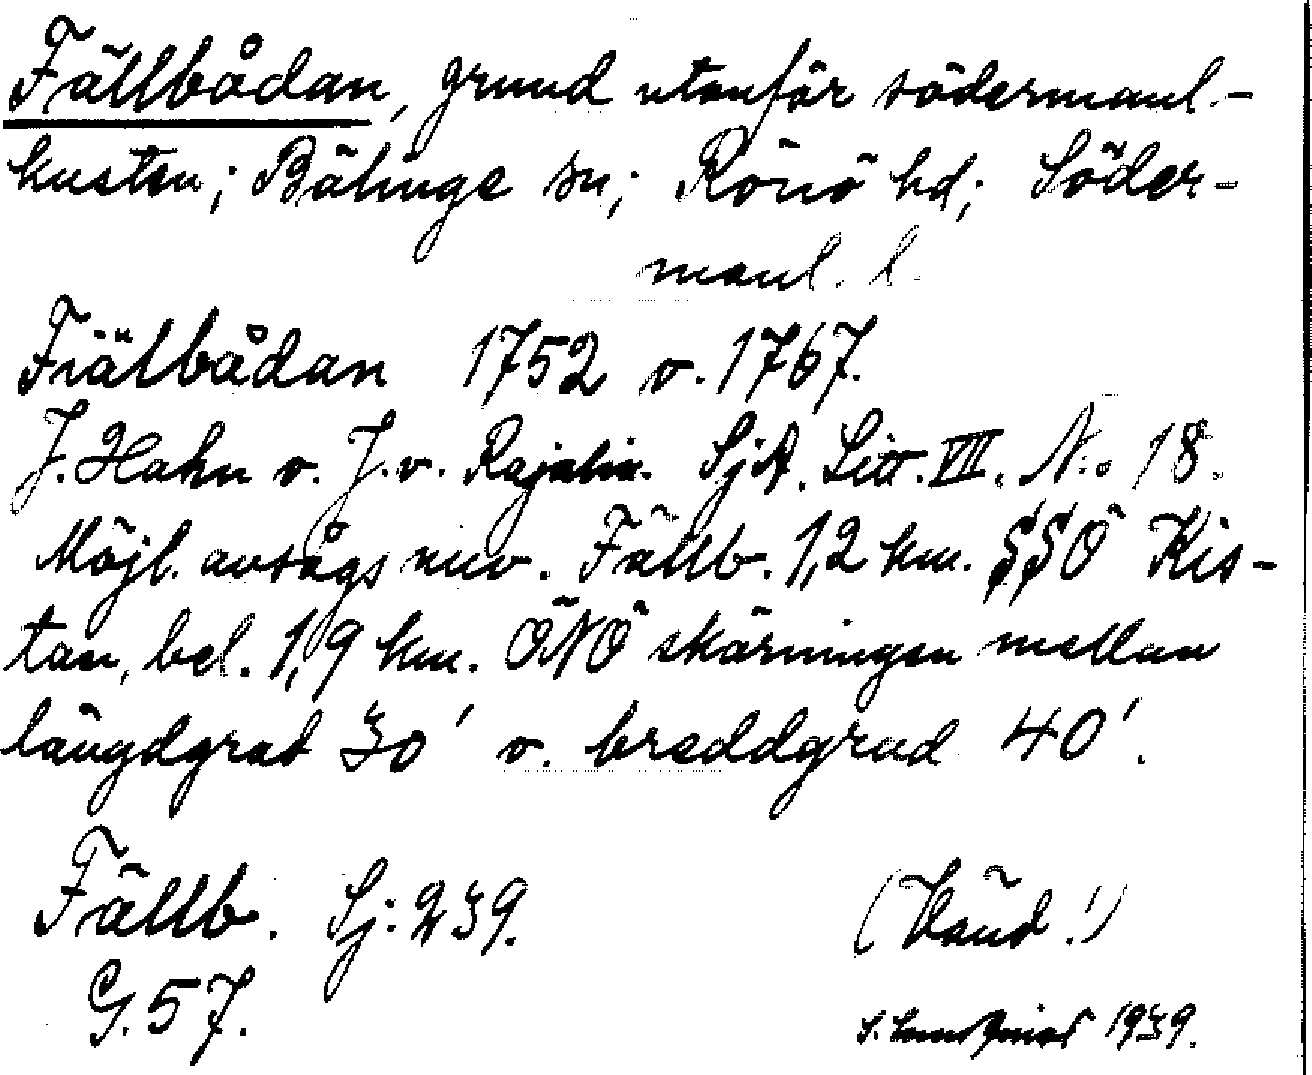 Fällbådan, grund utanför södermanl.-
kusten; Bälinge sn; Rönö hd; Söder-
manl. l.
Fiälbådan 1752 o. 1767.
J. Hahn o. J. v. Rajalin. SjA. Litt. VII. No 18.
Möjl. avsågs nuv. Fällb. 1,2 km. SSÖ Kis-
tan, bel. 1,9 km. ÖNÖ skärningen mellan
längdgrad 30' o. breddgrad 40'.
Fällb. Sj: 239.
(Vänd!)
G. 57.
1939.